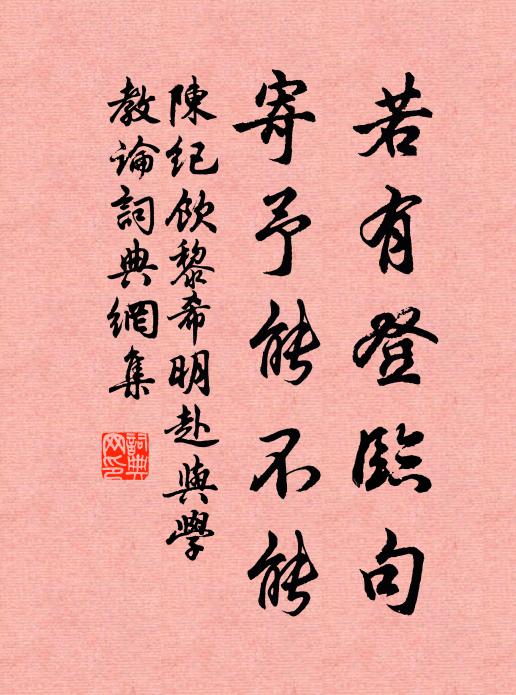 若有登臨句
寄予能不能
陳紀飲黎希明赴與學
教論詞典網集
詞典网印